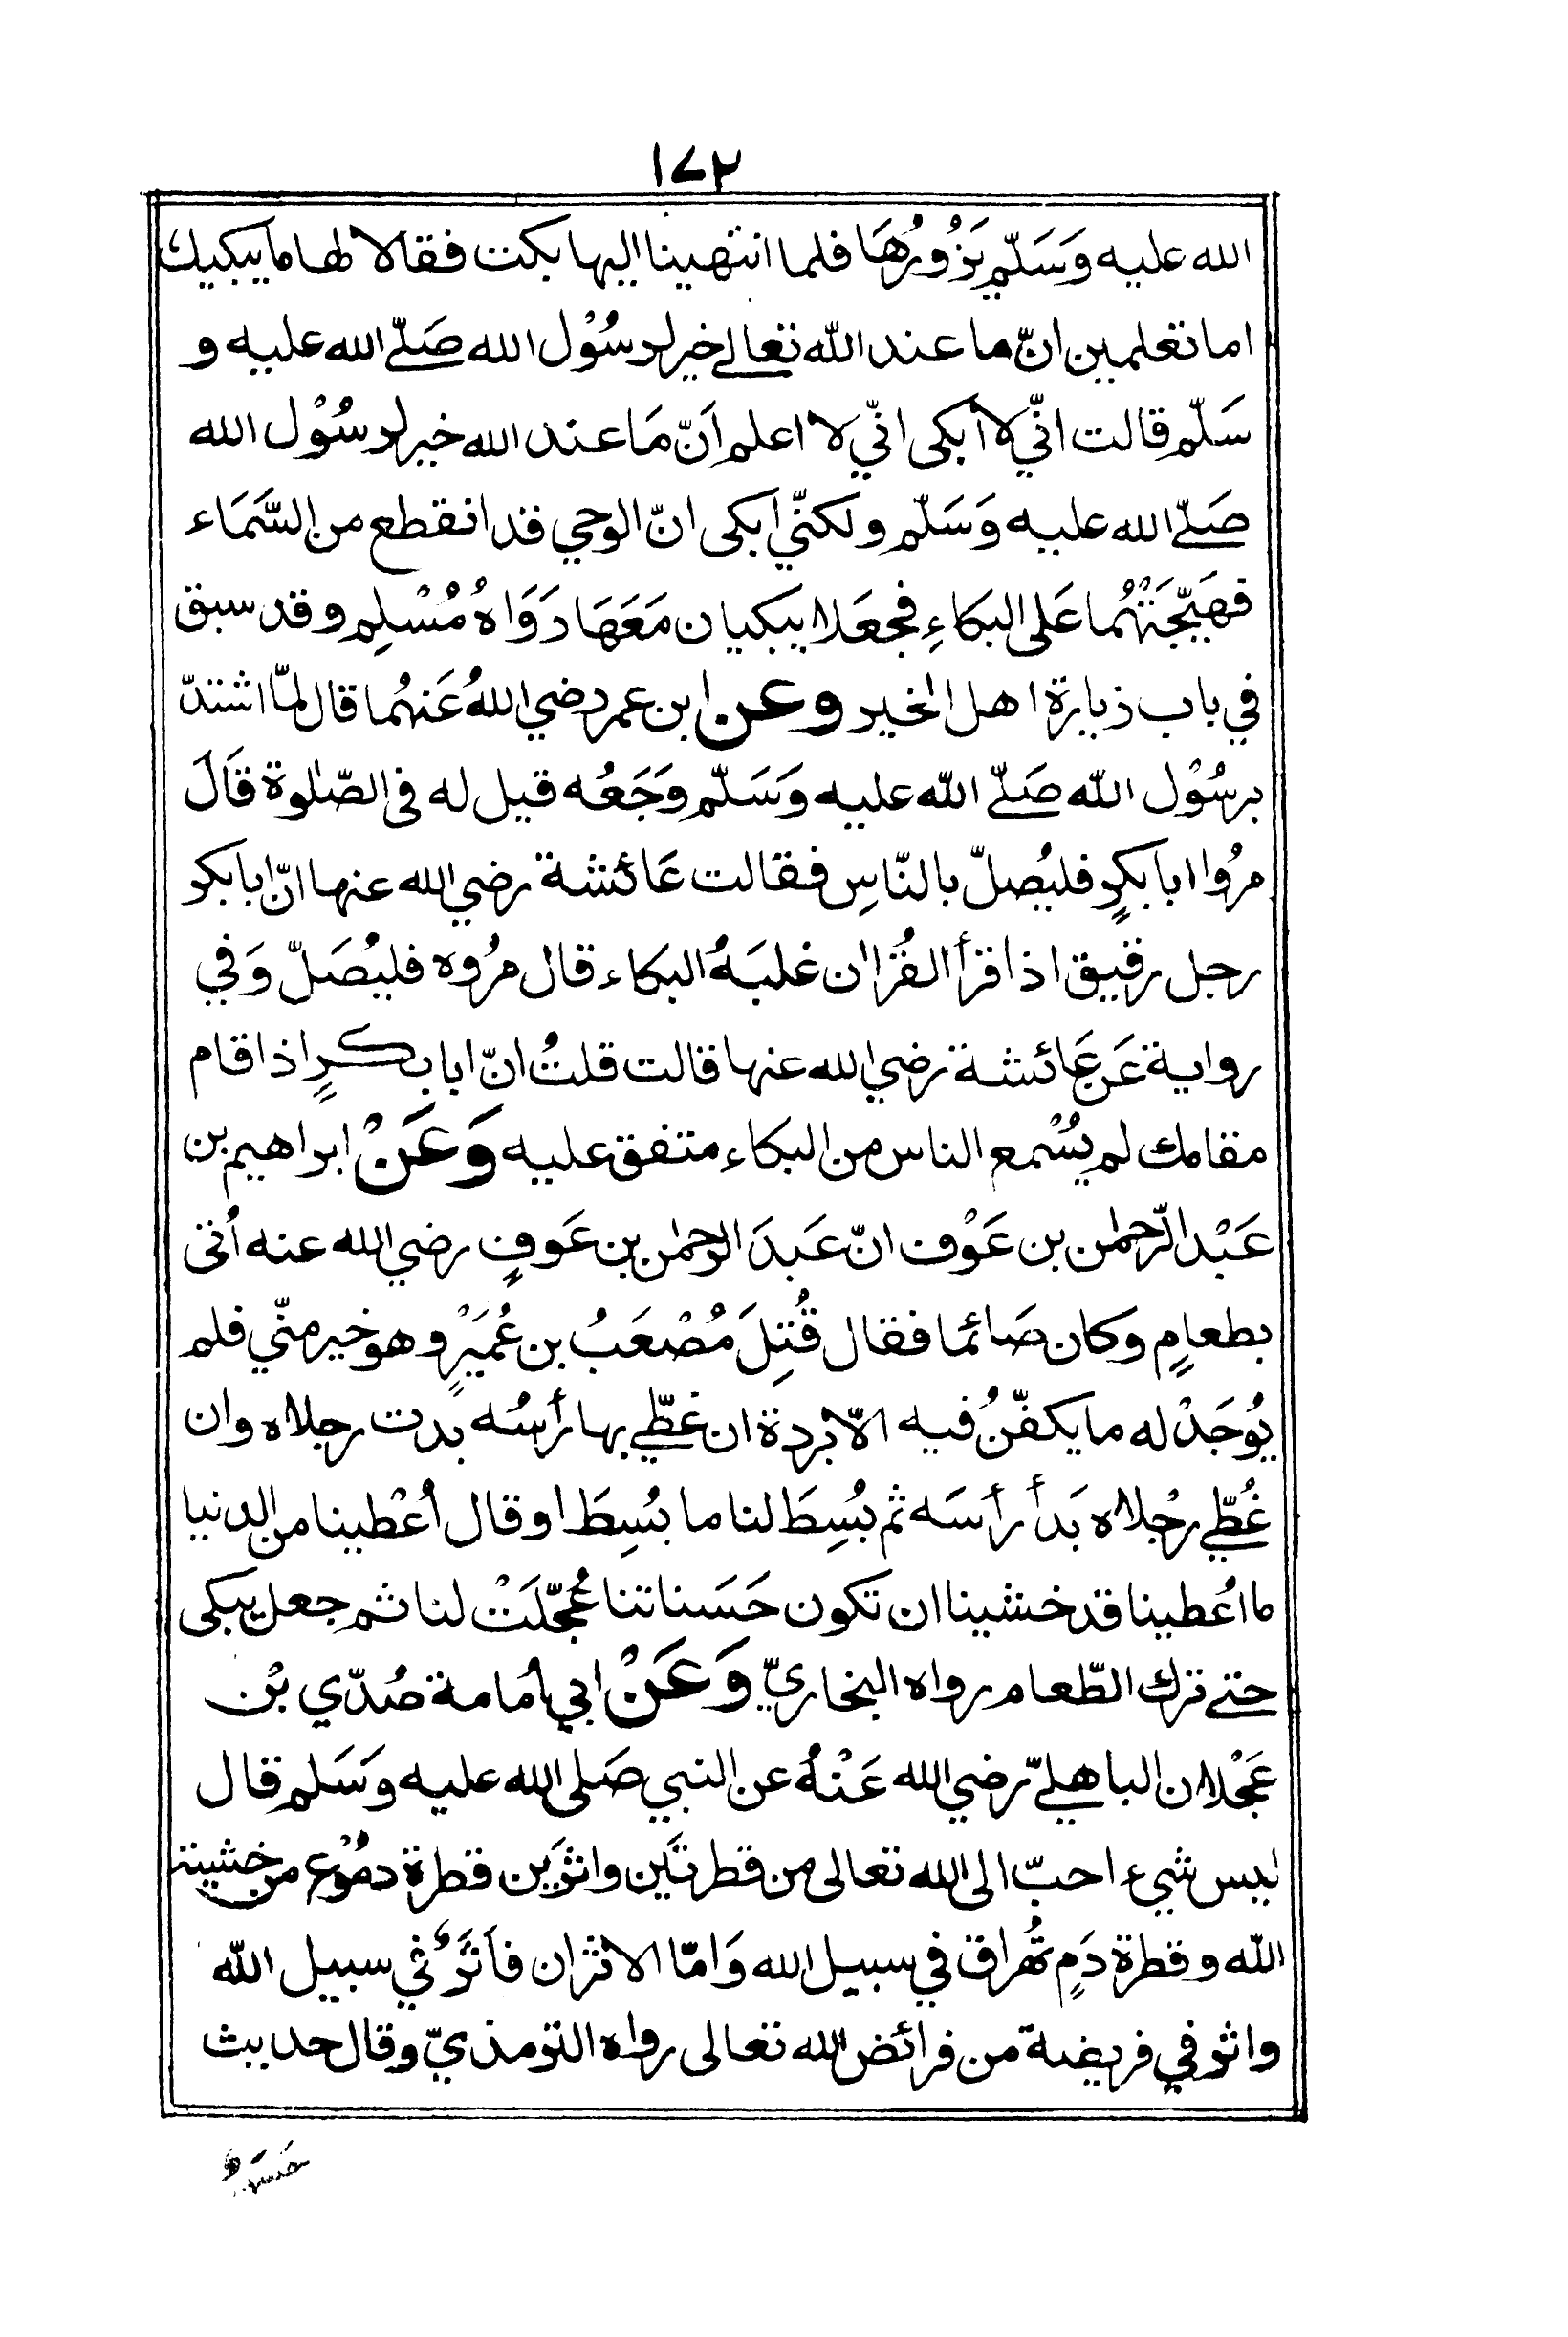 ١٧٢
الله عليه وَسَلّم يَزُورُهَا فلما انتهينا اليها بكت فقالا لها ما يبكيك
اما تعلمين انّ ما عند الله تعالى خير لرسُوْل الله صَلّى الله عليه و
سَلّم قالت انّي لا أبكى انّي لا اعلم اَنّ مَا عند الله خير لرسُوْل الله
صَلّى الله عليه وَسَلّم ولكنّي ابكى انّ الوحي قد انقطع من السَّمَاء
فهَيّجَتْهُما عَلى البكاءِ فجعَلا يبكيان مَعَهَا رَوَاهُ مُسْلِم وقد سبق
في باب زيارة اهل الخير وعن ابن عمر رضي اللهُ عَنهُما قال لمّا اشتدّ
برسُوْل الله صَلّى الله عليه وَسَلّم وَجَعُه قيل له في الصّلوة قَالَ
مرُوا ابا بكرٍ فليُصلّ بالنّاسِ فقالت عَائشة رضي الله عنها انّ ابا بكر
رجل رقيق اذا قرأ القُرْان غلبَهُ البكاء قال مرُوه فليُصَلّ وَفي
رواية عَن عَائشة رضي الله عنها قالت قلتُ انّ ابا بكرٍ اذا قام
مقامك لم يُسْمع الناس من البكاء متفق عليه وَعَنْ ابراهيم بن
عَبْد الرّحمٰن بن عَوْف انّ عَبدَ الرحمٰن بن عَوفٍ رضي الله عنه اُتى
بطعامٍ وكان صَائما فقال قُتِلَ مُصْعَبُ بن عُمَيْرٍ وهو خير منّي فلم
يُوجَدْ له ما يكفّنُ فيه الاّ بردة ان غطّي بها رأسُه بدت رجلاه وان
غُطّي رجُلاه بَدأ رأسَه ثم بُسِطَ لنا ما بُسِطَ او قال اُعْطينا من الدنيا
ما اُعطينا قد خشينا ان تكون حَسَناتنا عُجّلَتْ لنا ثم جعل يبكى
حتى ترك الطّعام رواه البخاريّ وَعَنْ ابي اُمَامة صُدّي بْن
عَجْلان الباهليّ رضي الله عَنْهُ عن النبي صَلى الله عليه وَسَلم قال
ليس شيء احبّ الى الله تعالى من قطرتَين واثرَين قطرة دمُوْع من خشية
الله وقطرة دَمٍ تُهراق في سبيل الله وَامّا الاثران فاَثَرٌ في سبيل الله
واثر في فريضة من فرائض الله تعالى رواه الترمذيّ وقال حديث
حَسَنٌ